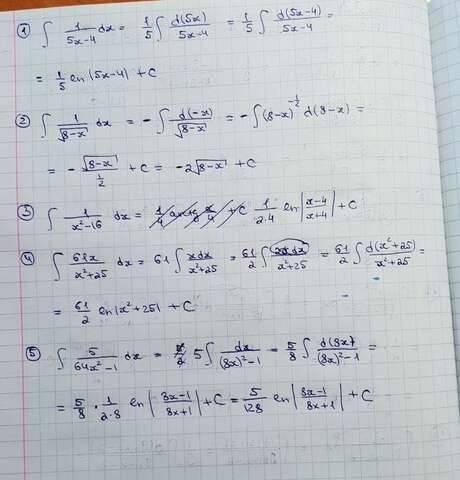 ① ∫ 1/(5x-4) dx = 1/5 ∫ d(5x)/(5x-4) = 1/5 ∫ d(5x-4)/(5x-4) =
= 1/5 ln|5x-4| + C
② ∫ 1/√(8-x) dx = -∫ d(-x)/√(8-x) = -∫ (8-x)^(-1/2) d(8-x) =
= - √(8-x)/(1/2) + C = -2√(8-x) + C
③ ∫ 1/(x²-16) dx = 1/(2·4) ln|(x-4)/(x+4)| + C
④ ∫ 61x/(x²+25) dx = 61 ∫ xdx/(x²+25) = 61/2 ∫ 2xdx/(x²+25) = 61/2 ∫ d(x²+25)/(x²+25) =
= 61/2 ln|x²+25| + C
⑤ ∫ 5/(64x²-1) dx = 5 ∫ dx/((8x)²-1) = 5/8 ∫ d(8x)/((8x)²-1) =
= 5/8 · 1/(2·8) ln|(8x-1)/(8x+1)| + C = 5/128 ln|(8x-1)/(8x+1)| + C